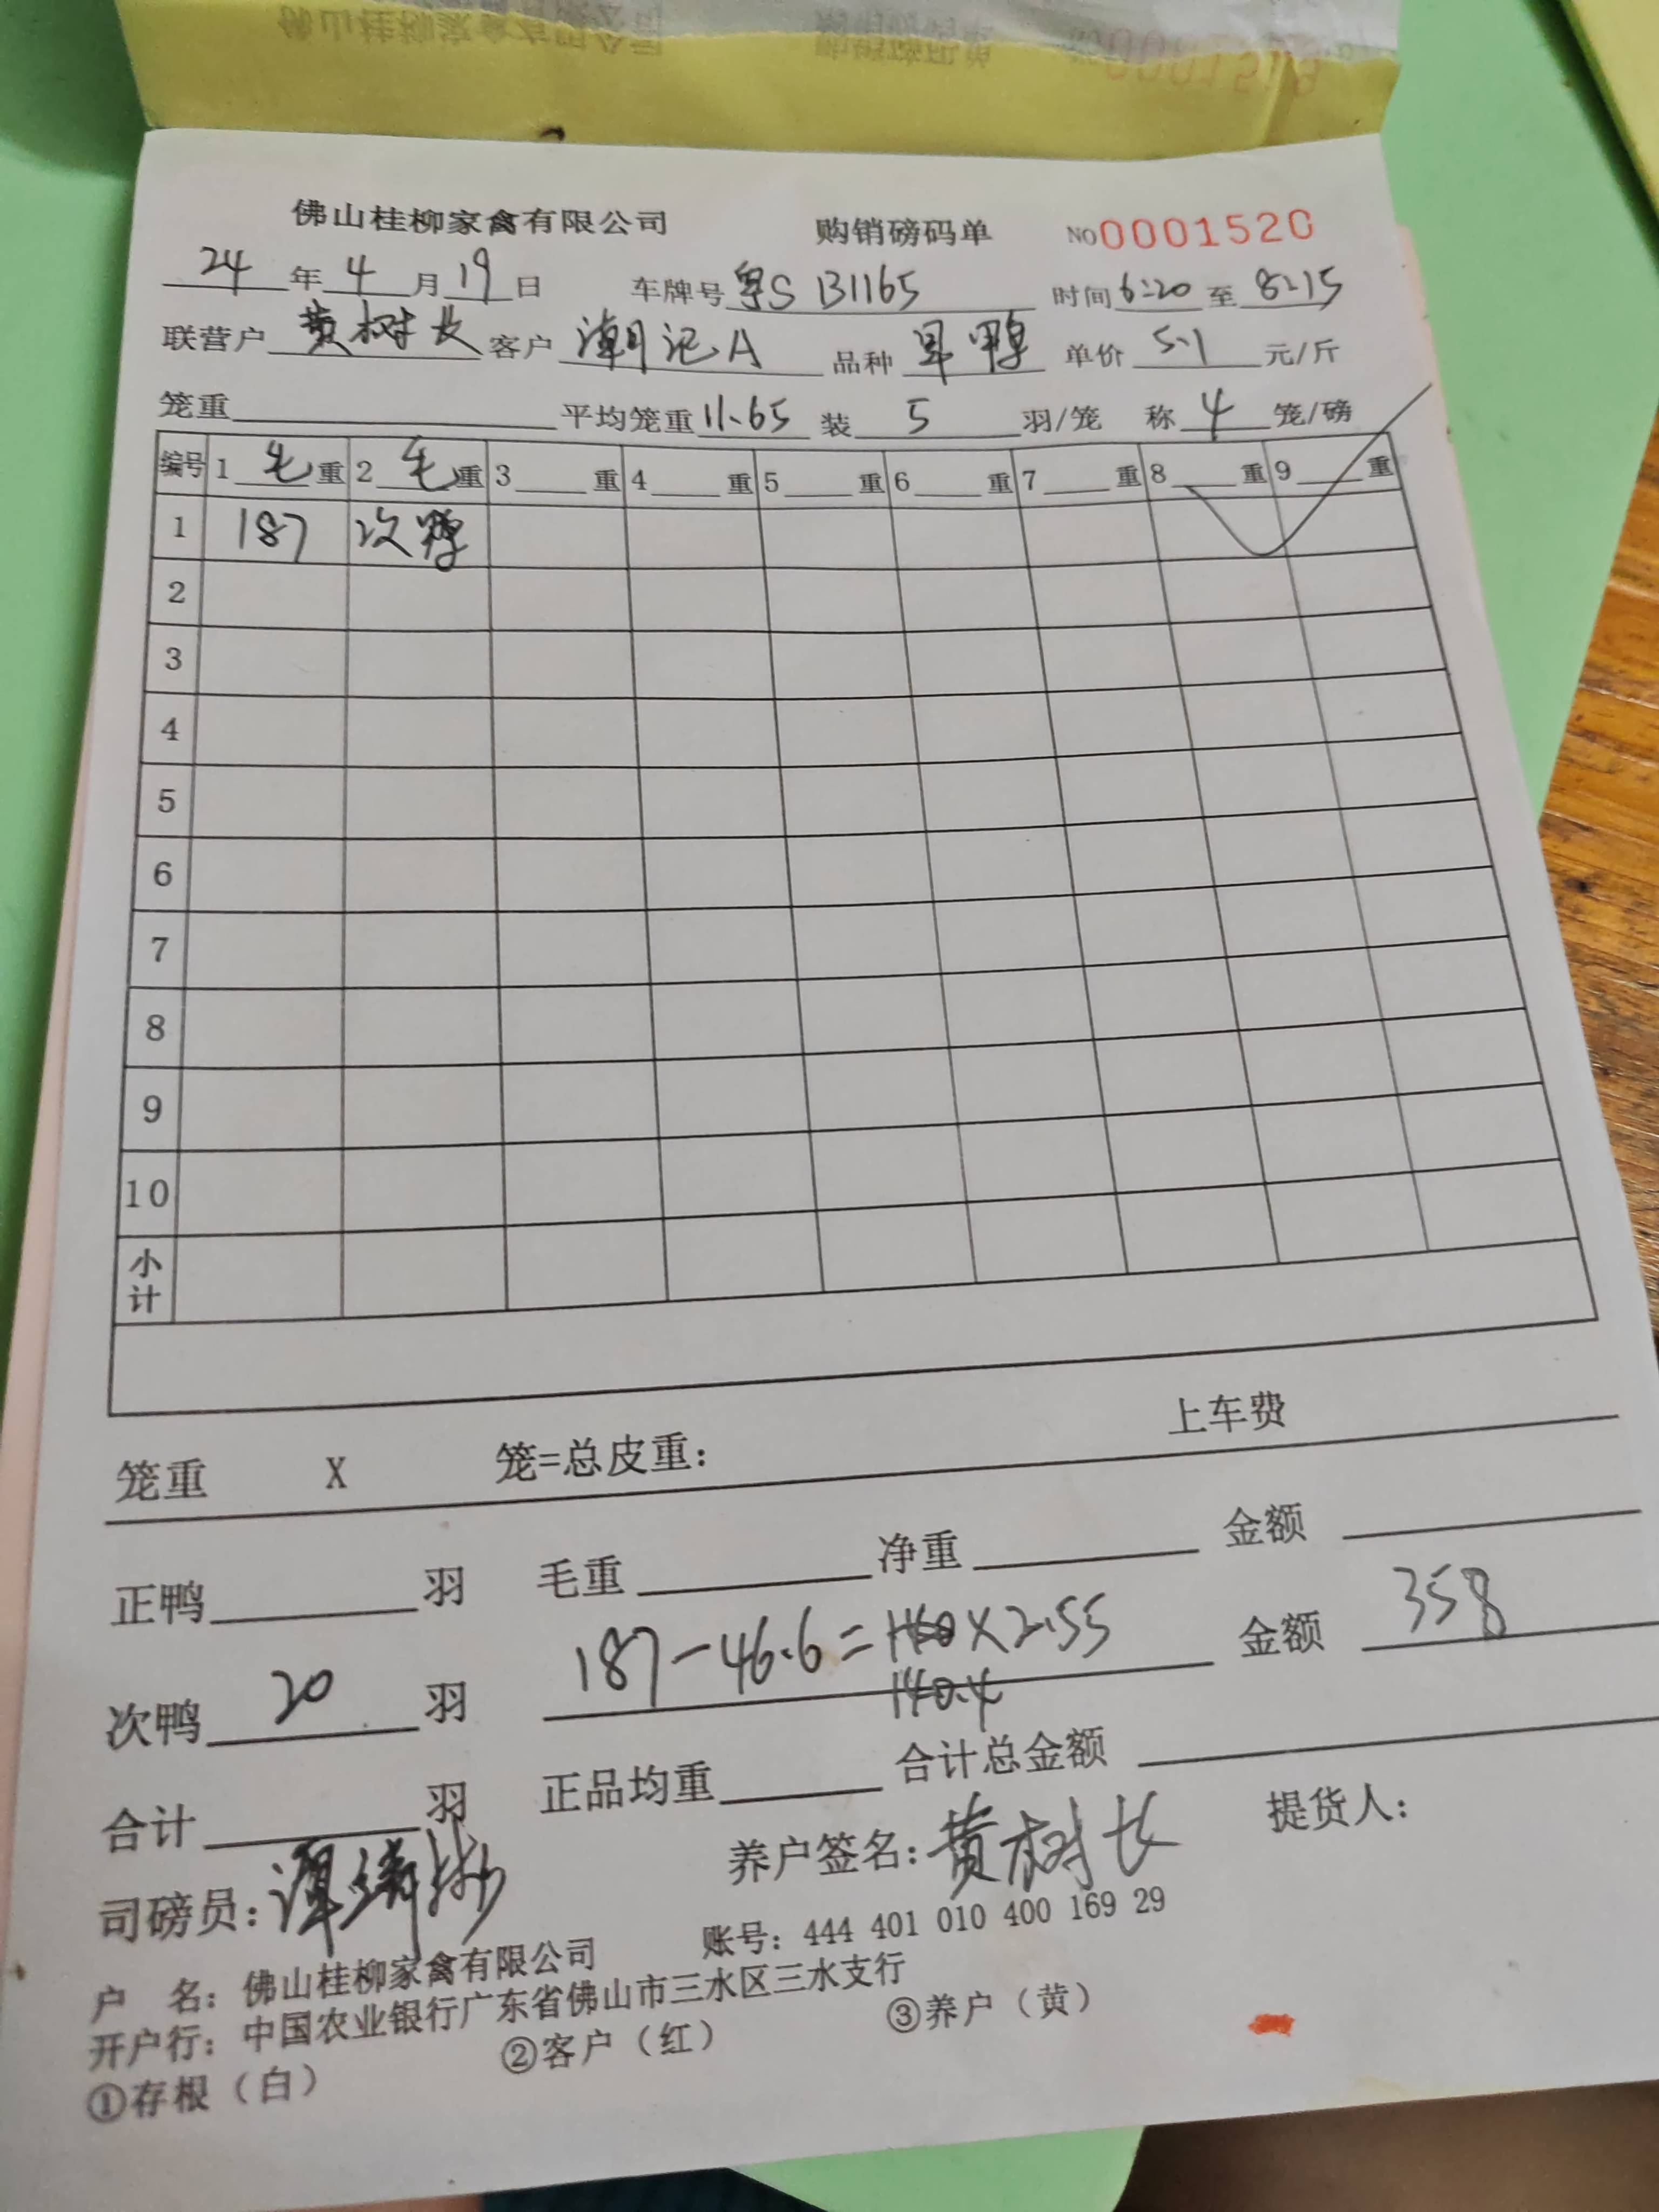 佛山桂柳家禽有限公司 购销磅码单 NO 0001520
24年4月19日 车牌号粤S B1165 时间6:20至8:15
联营户黄树长 客户潮记A 品种旱鸭 单价5.1元/斤
笼重 平均笼重11.65 装5羽/笼 称4笼/磅
编号 1毛重 2毛重 3重 4重 5重 6重 7重 8重 9重
1 187 次鸭
2
3
4
5
6
7
8
9
10
小计
笼重 X 笼=总皮重: 上车费
正鸭 羽 毛重 净重 金额
次鸭 20 羽 187-46.6= X2.55 金额 358
140.4
合计 羽 正品均重 合计总金额
司磅员: 养户签名:黄树长 提货人:
户 名: 佛山桂柳家禽有限公司 账号: 444 401 010 400 169 29
开户行: 中国农业银行广东省佛山市三水区三水支行
①存根(白) ②客户(红) ③养户(黄)